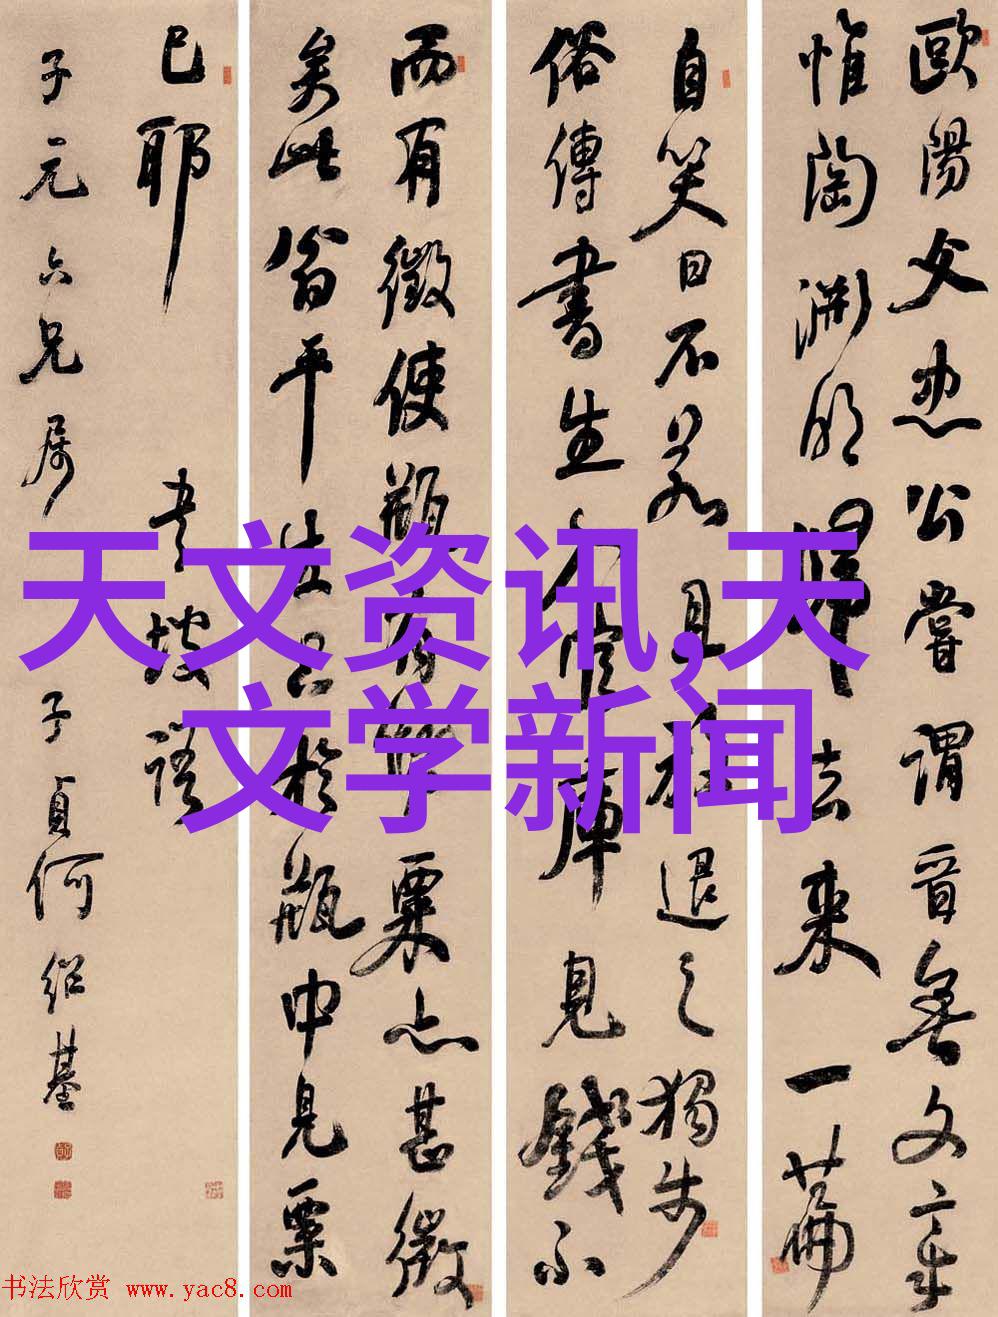 歐陽文忠公嘗謂晉無文章
惟陶淵明歸去來一篇
自笑曰不若且放退之獨步
俗傳書生入官庫見錢不
而有徵使瓶有儲粟亦甚微
矣此翁平生只於瓶中見粟
已耶
坡語
子元六兄屬 子貞何紹基
天文资讯,天
文学新闻
书法欣赏 www.yac8.com